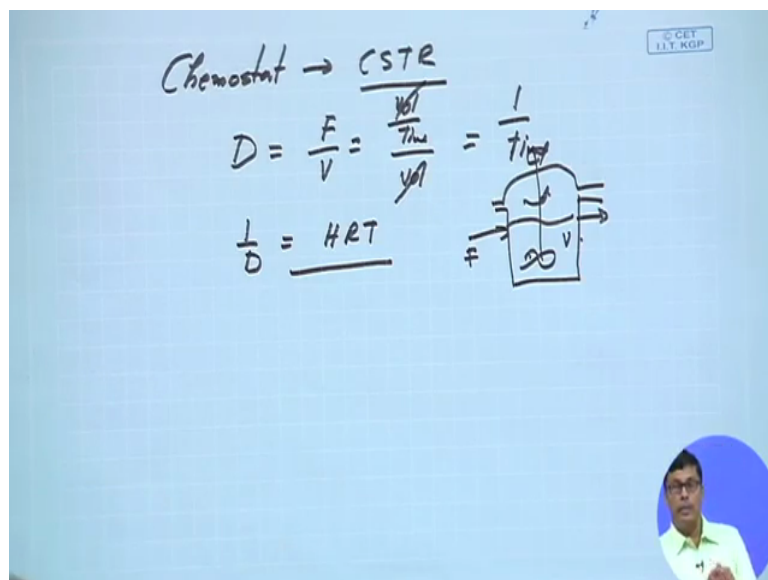 © CET
I.I.T. KGP
Chemostat → CSTR
D = F/V = (vol/Time)/vol = 1/time
1/D = HRT
F
V